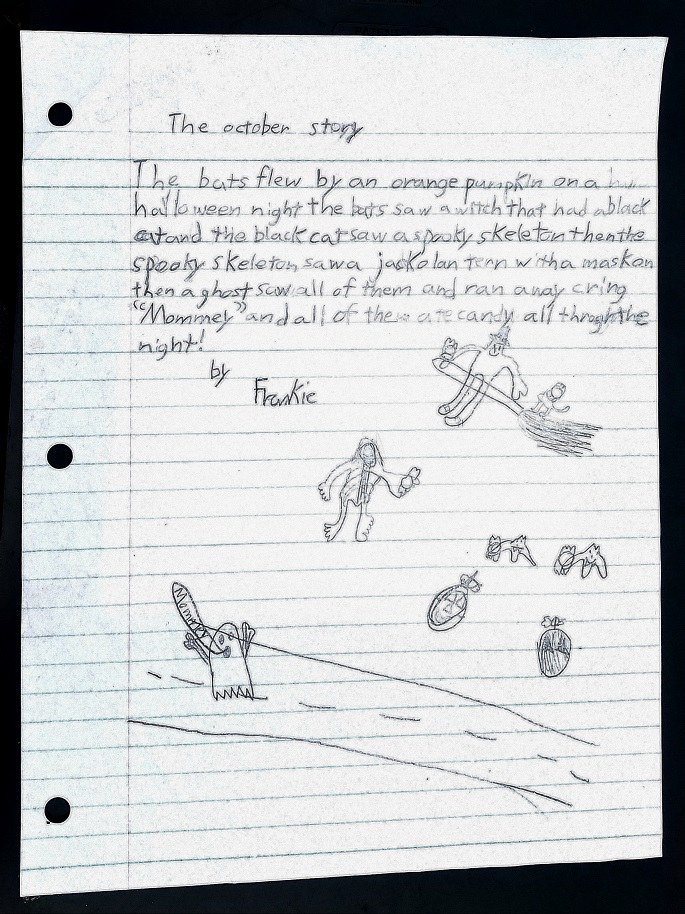 The october story
The bats flew by an orange pumpkin on a
halloween night the bats saw a witch that had a black
cat and the black cat saw a spooky skeleton then the
spooky skeleton saw a jackolantern with a mask on
then a ghost saw all of them and ran away cring
"Mommey" and all of them ate candy all throghthe
night!
by
Frankie
Mommey